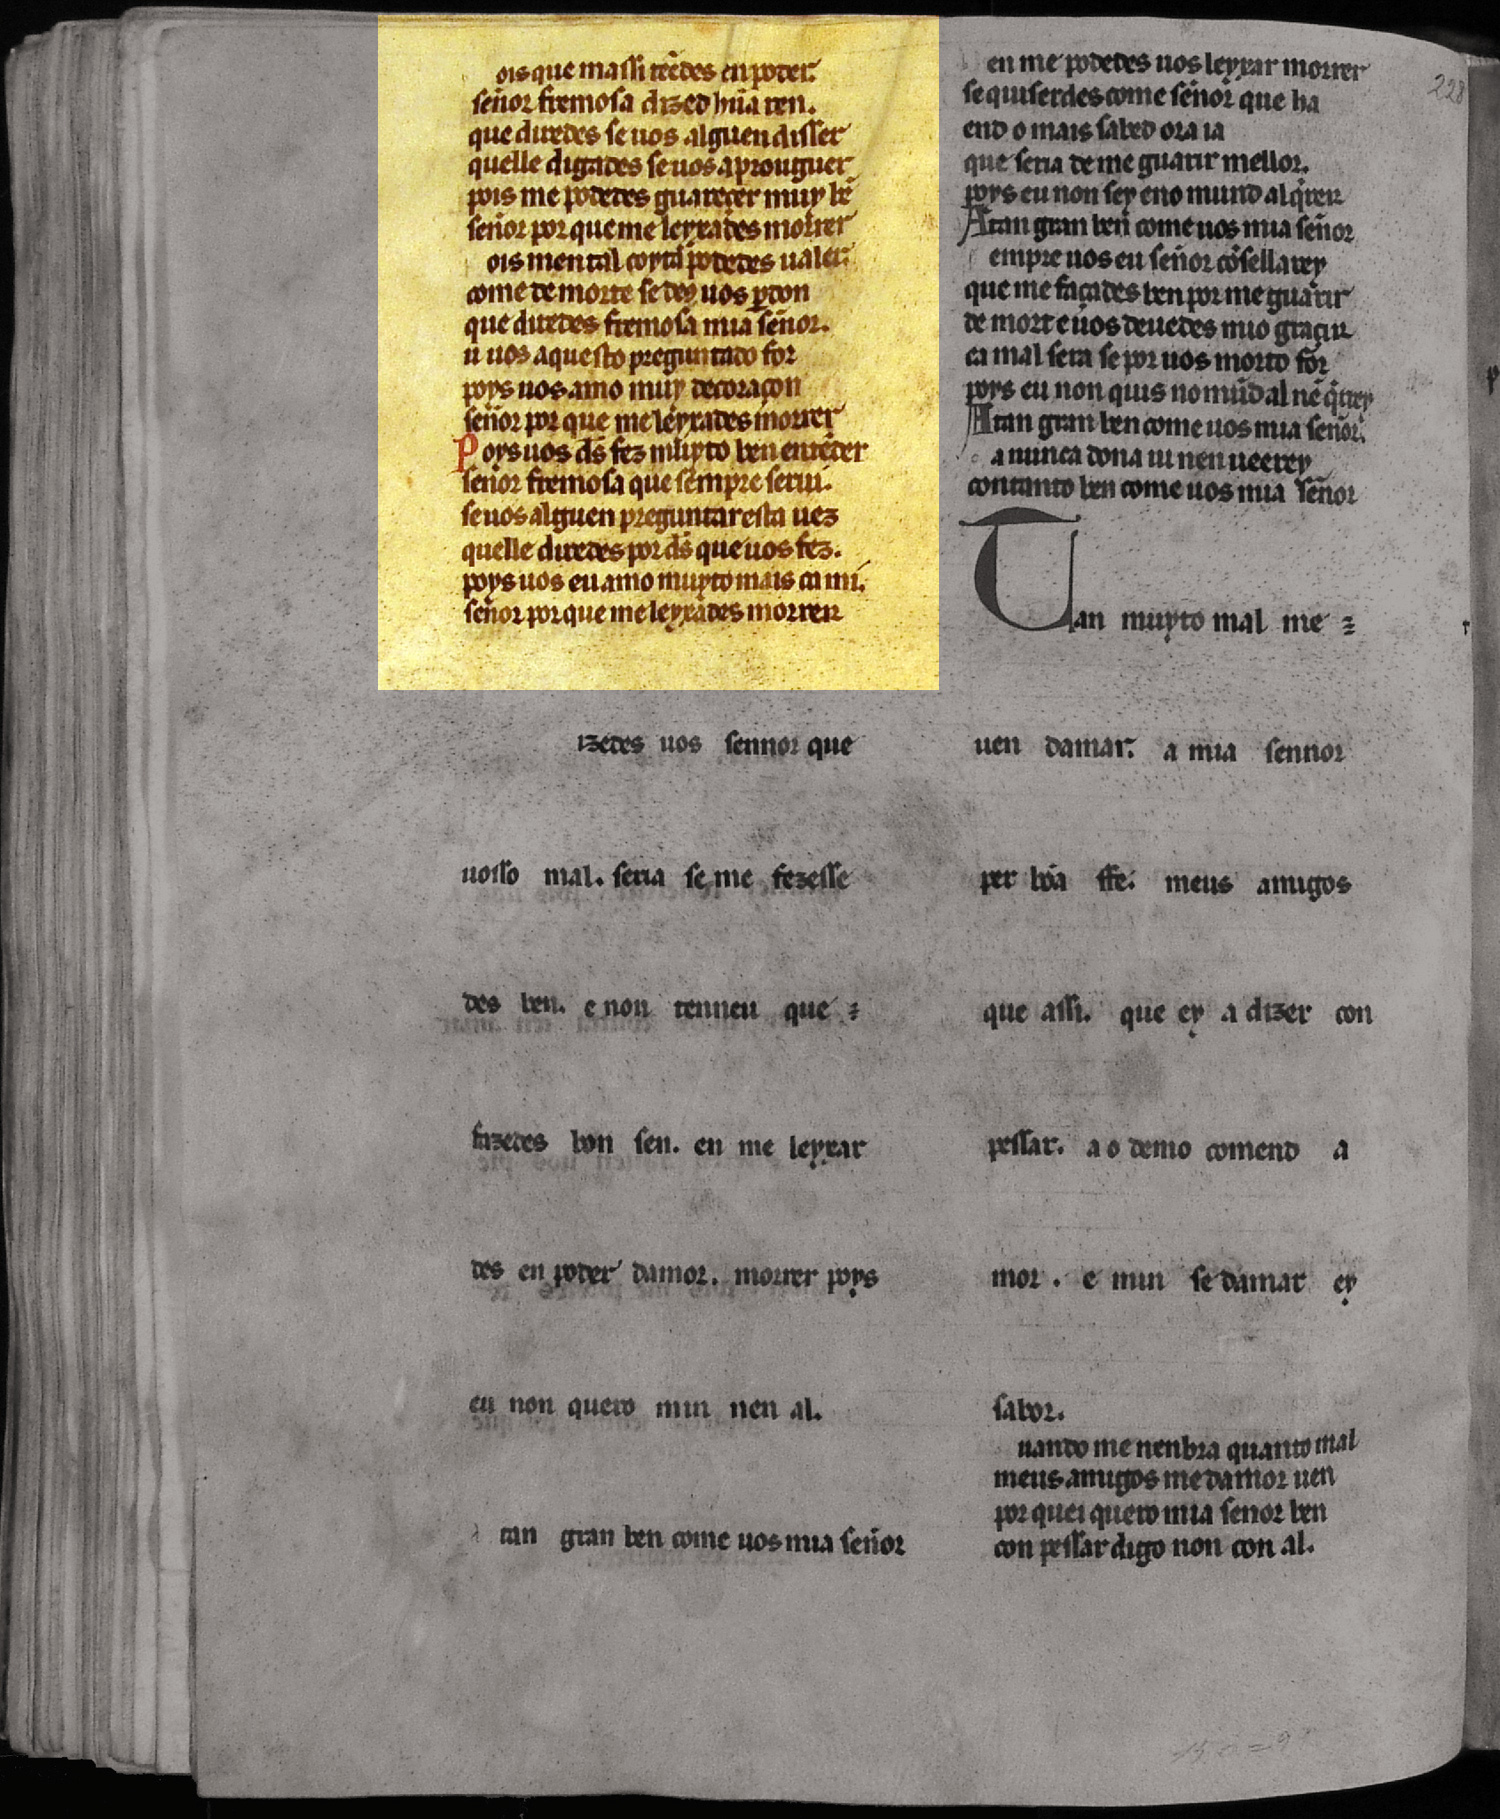 ois que massi tẽedes en poder.
señor fremosa dized hũa ren.
que diredes se uos alguen disser
quelle digades se uos aprouguer
pois me podedes guareçer muy bẽ
señor por que me leyxades morrer
ois men tal coyta podedes ualer.
come de morte se dey uos ꝑdon
que diredes fremosa mia señor.
u uos aquesto preguntado for
poys uos amo muy de coraçon
señor por que me leyxades morrer
Poys uos ds̃ fez muyto ben entẽder
señor fremosa que sempre serui.
se uos alguen preguntar esta uez
quelle diredes por ds̃ que uos fez.
poys uos eu amo muyto mais ca mi.
señor por que me leyxades morrer
izedes uos sennor que
uosso mal. seria se me fezesse
des ben. e non tenneu que
fazedes bon sen. en me leyxar
des en poder damor. morrer poys
eu non quero min nen al.
tan gran ben come uos mia señor
en me podedes uos leyxar morrer
se quiserdes come señor que ha
end o mais sabed ora ia
que seria de me guarir mellor.
poys eu non sey eno mund al q̃rer
A tan gran ben come uos mia señor
empre uos eu señor cõsellarey
que me façades ben por me guarir
de morte uos deuedes mio graçir
ca mal sera se por uos morto for
poys eu non quis no mũd al nẽ q̃rrey
A tan gran ben come uos mia señor.
a nunca dona ui nen ueerey
con tanto ben come uos mia señor
Tan muyto mal me
uen damar. a mia sennor
per bõa ffe. meus amigos
que assi. que ey a dizer con
pessar. a o demo comend a
mor. e min se damar ey
sabor.
uando me nenbra quanto mal
meus amigos me damor uen
por quei quero mia senor ben
con pessar digo non con al.
228